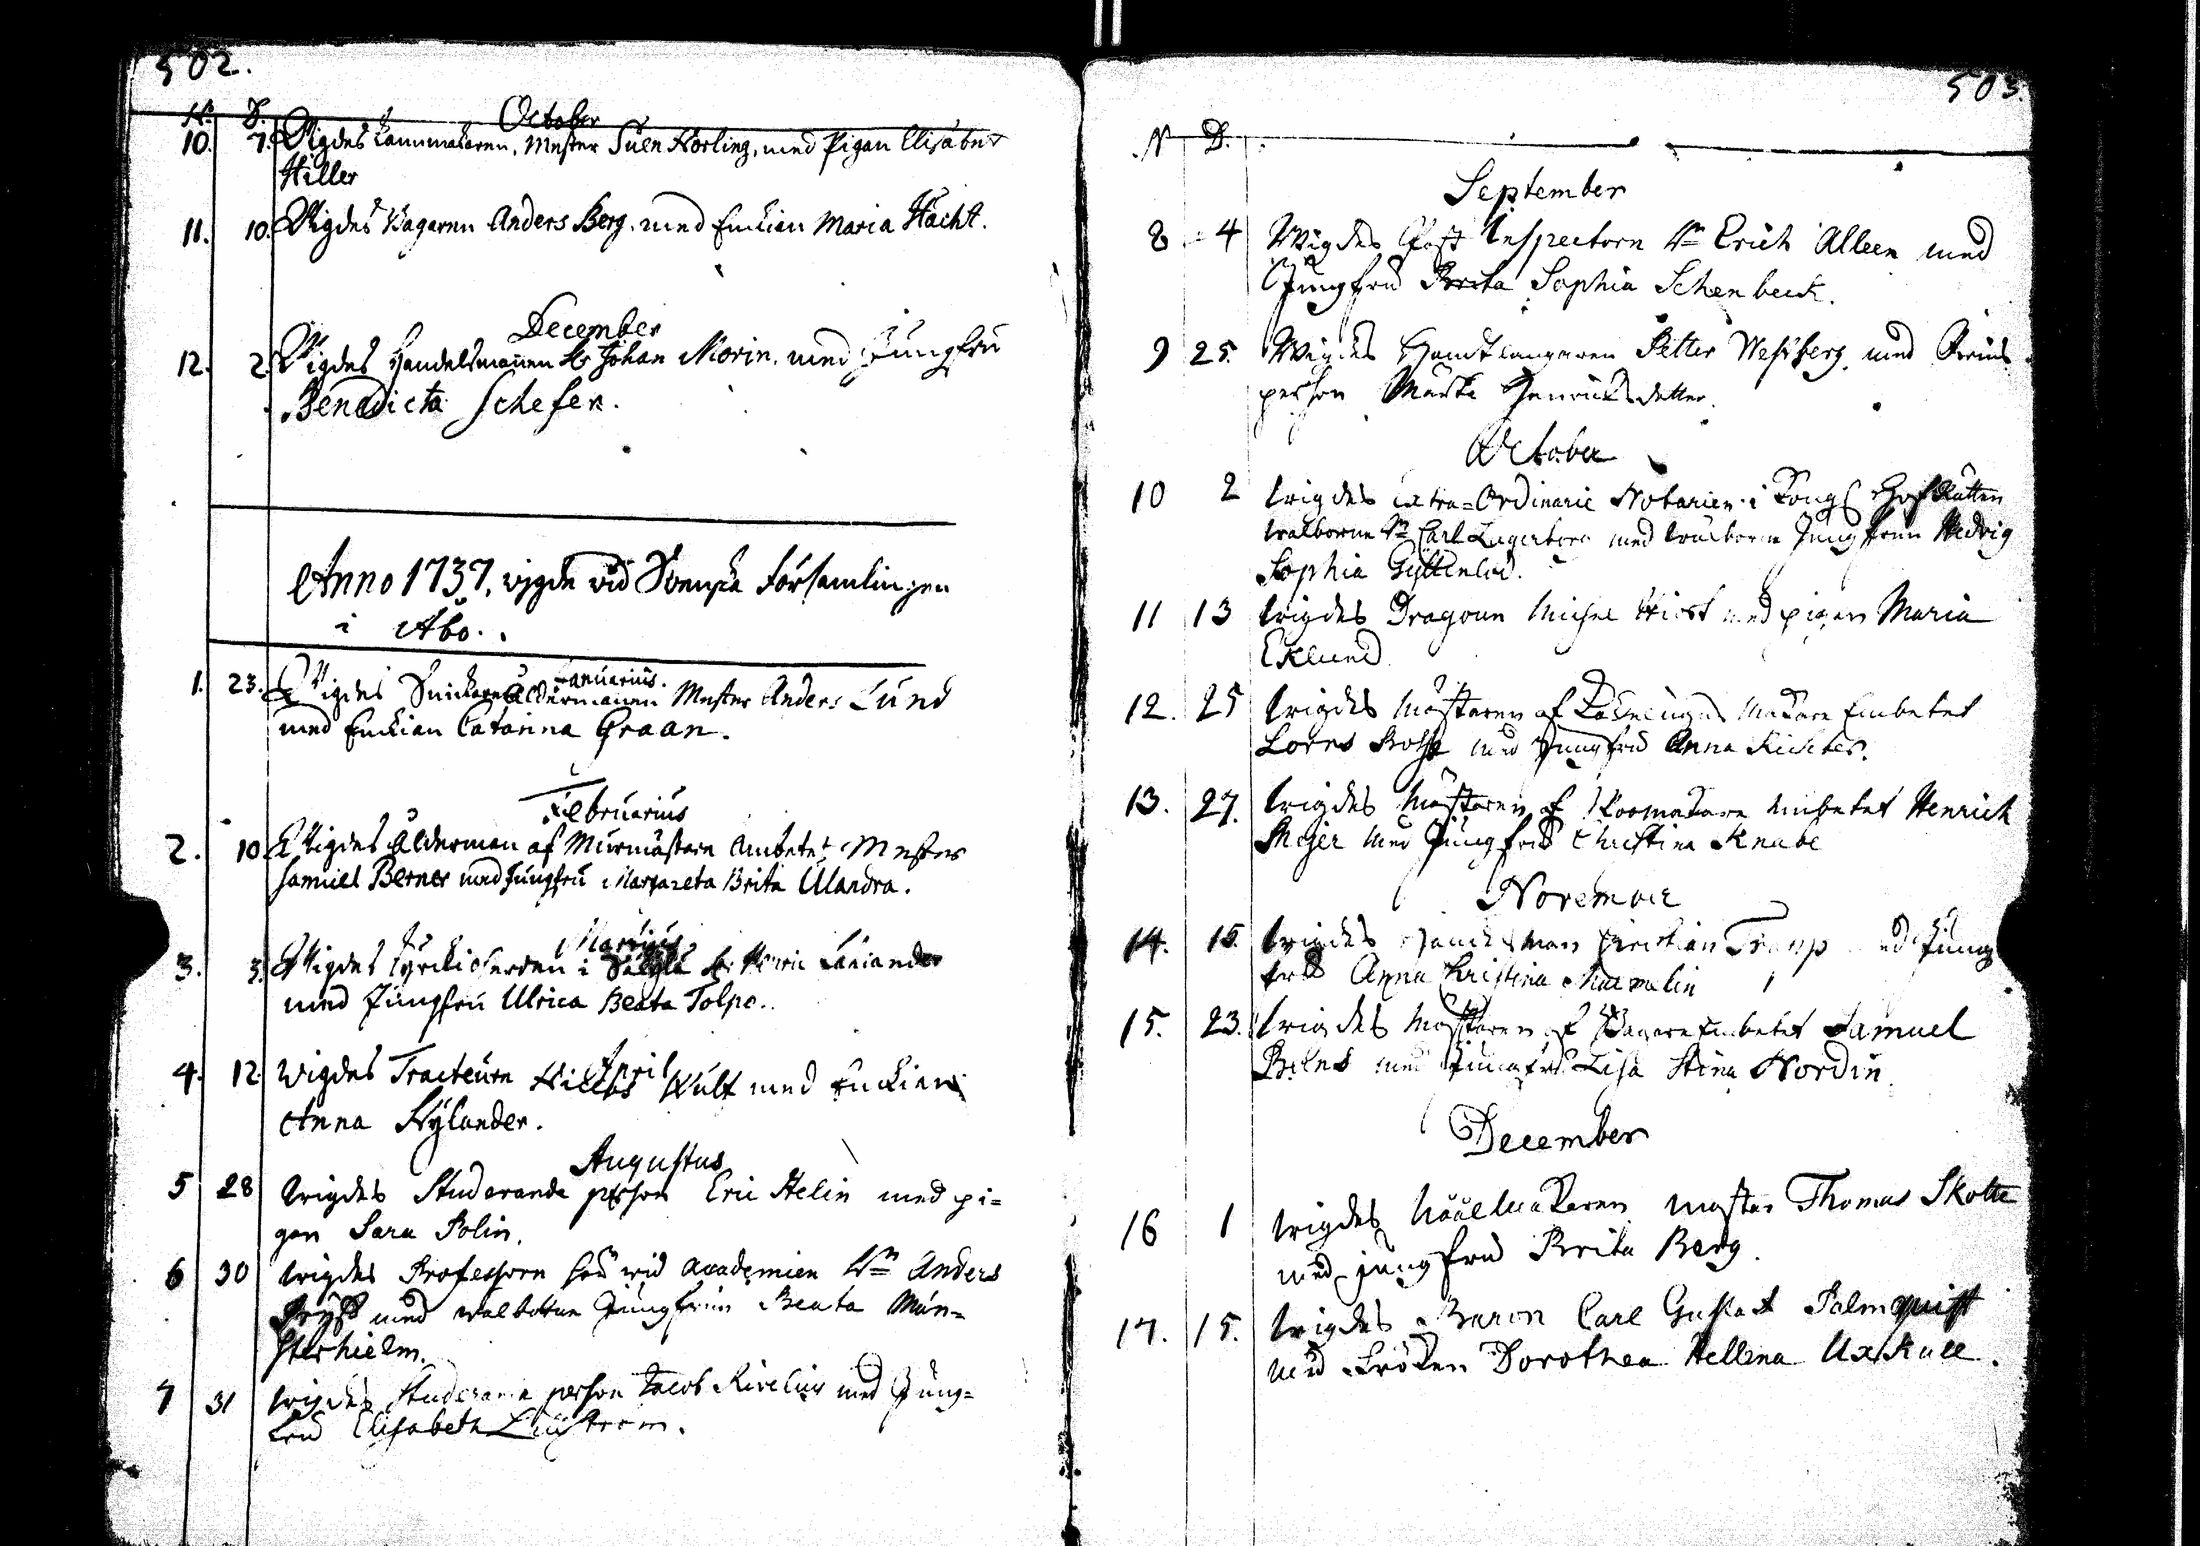 502.
N. D. October
10. 7. Vigdes Kammakaren, Mester Suen Norling, med Pigan Elisabet
Hiller
11. 10. Vigdes Bagaren Anders Berg. med Enckian Maria Hacht.
December
12. 2. Vigdes Handelsmannen Hr Johan Morin. med Jungfru
Benedicta Schefer.
Anno 1737, vigde vid Svenska Församlingen
i Åbo.
Januarius.
1. 23. Vigdes Snickare Åldermannen Mester Anders Lund
med Enckian Catarina Graan.
Februarius
2. 10. Vigdes Ålderman af Murmästare Ambetet Mester
Samuel Berner med Jungfru Margareta Brita Ulandra.
Martius
3. 3. Vigdes Kyrckioherden i
med Jungfru Ulrica Beata Tolpo.
April
4. 12 Wigdes Tracteurn Wult med Enckian
Anna Nylander.
Augustus
5 28 Wigdes Studerande person Eric Helin med pi=
gan Sara Polin.
6 30 Wigdes Professorn här wid Academien Hr Anders
med walborne Jungfrun Beata Mün=
sterhielm.
7 31 Wigdes Studerande person Jacob med Jung=
fru Elisabeth
503.
N D.
September
8 4 Wigdes Post Inspectorn Hr Erich Alleen med
Jungfru Brita Sophia Schenbeck.
9 25. Wigdes Handtlangaren Petter Wessberg. med
person Henricksdotter.
October
10 2 Wigdes extra=Ordinarie Notarien i Kongl HofRätten
walborne Hr Carl Lagerborg med walborne Jungfrun Hedvig
Sophia
11 13 Wigdes Dragoun med pigan Maria
Eklund
12. 25 Wigdes Mästaren af Makare Embetet
med Jungfru Anna Richter.
13. 27. Wigdes Mästaren af Embetet Henrich
Meijer med Jungfru Christina Knabe
November
14. 15. Wigdes Handelsman Christian med Jung
fru Anna Christina
15. 23. Wigdes Mästaren af Bagare Embetet Samuel
med Jungfru Lisa Stina Nordin
December
16 1 Wigdes mäster Thomas Skotte
med jungfru Brita Berg.
17. 15. Wigdes Baron Carl Gustaf Palmquist
med Fröken Dorothea Hellena Uxkull.